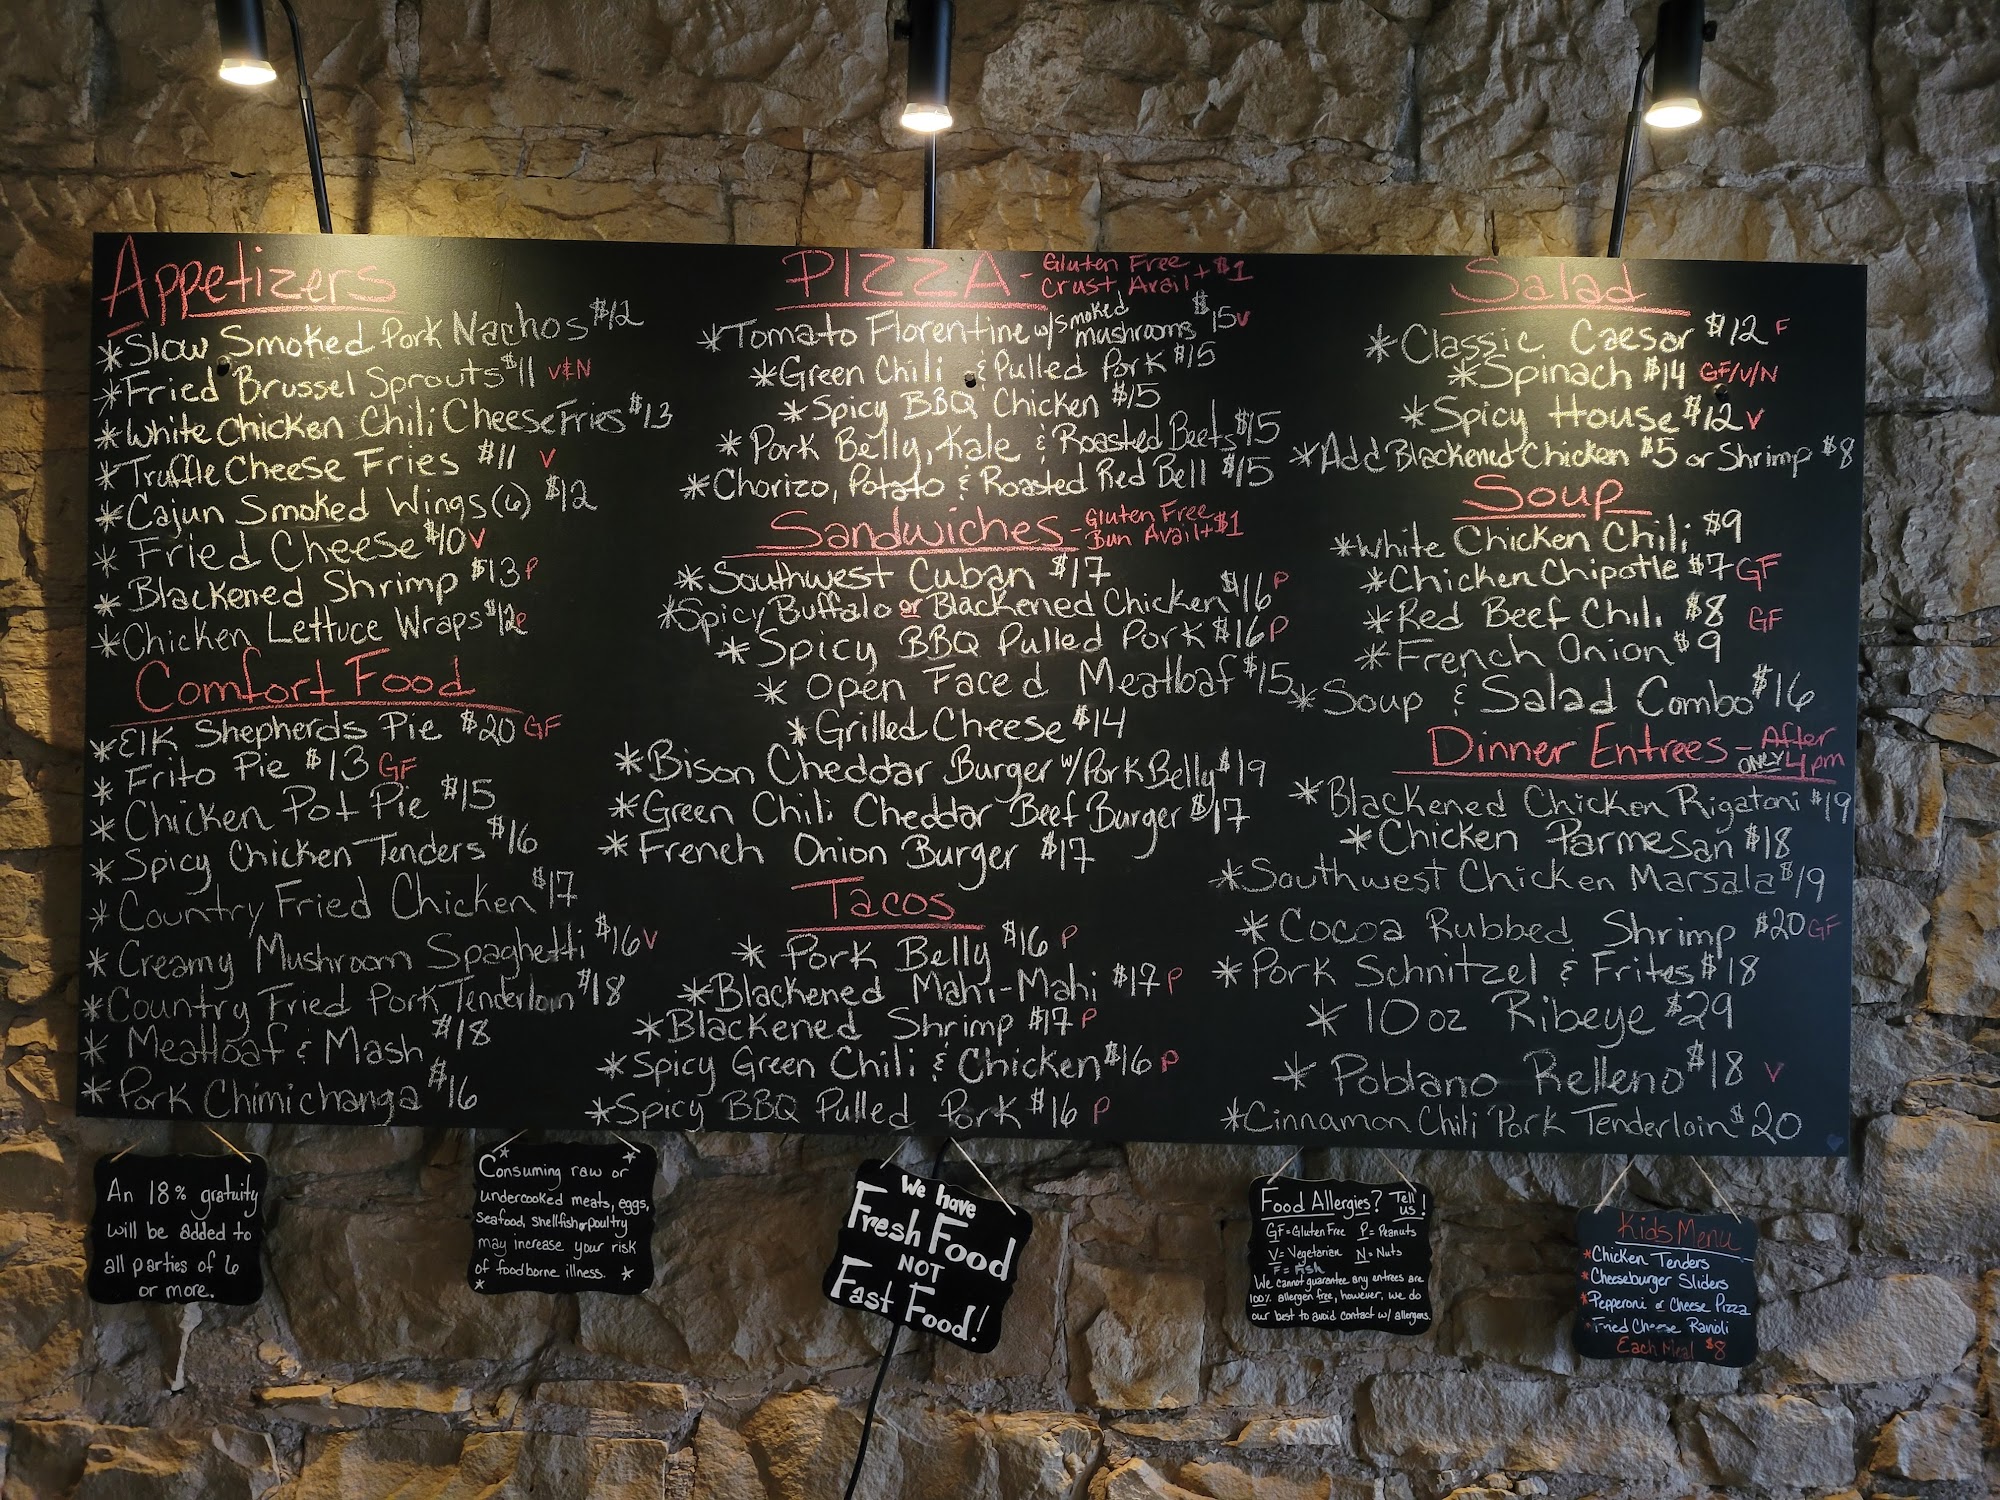 Appetizers
*Slow Smoked Pork Nachos $12
*Fried Brussel Sprouts $11 V&N
*White Chicken Chili Cheese Fries $13
*Truffle Cheese Fries $11 V
*Cajun Smoked Wings (6) $12
* Fried Cheese $10 V
* Blackened Shrimp $13 P
*Chicken Lettuce Wraps $12 P
Comfort Food
*Elk Shepherds Pie $20 GF
* Frito Pie $13 GF
* Chicken Pot Pie $15
* Spicy Chicken Tenders $16
* Country Fried Chicken $17
* Creamy Mushroom Spaghetti $16 V
*Country Fried Pork Tenderloin $18
* Meatloaf & Mash $18
* Pork Chimichanga $16
PIZZA - Gluten Free
Crust Avail + $1
*Tomato Florentine w/ smoked mushrooms $15 V
*Green Chili & Pulled Pork $15
*Spicy BBQ Chicken $15
* Pork Belly, Kale & Roasted Beets $15
*Chorizo, Potato & Roasted Red Bell $15
Sandwiches - Gluten Free
Bun Avail + $1
*Southwest Cuban $17
*Spicy Buffalo or Blackened Chicken $16 P
* Spicy BBQ Pulled Pork $16 P
* Open Faced Meatloaf $15
*Grilled Cheese $14
*Bison Cheddar Burger w/ Pork Belly $19
*Green Chili Cheddar Beef Burger $17
*French Onion Burger $17
Tacos
* Pork Belly $16 P
*Blackened Mahi-Mahi $17 P
*Blackened Shrimp $17 P
*Spicy Green Chili & Chicken $16 P
*Spicy BBQ Pulled Pork $16 P
Salad
*Classic Caesar $12 F
*Spinach $14 GF/V/N
*Spicy House $12 V
*Add Blackened Chicken $5 or Shrimp $8
Soup
*White Chicken Chili $9
*Chicken Chipotle $7 GF
*Red Beef Chili $8 GF
*French Onion $9
*Soup & Salad Combo $16
Dinner Entrees - After
ONLY 4pm
*Blackened Chicken Rigatoni $19
*Chicken Parmesan $18
*Southwest Chicken Marsala $19
*Cocoa Rubbed Shrimp $20 GF
*Pork Schnitzel & Frites $18
* 10oz Ribeye $29
* Poblano Relleno $18 V
*Cinnamon Chili Pork Tenderloin $20
An 18% gratuity
will be added to
all parties of 6
or more.
* Consuming raw or *
undercooked meats, eggs,
seafood, shellfish or poultry
may increase your risk
of foodborne illness. *
*
We have
Fresh Food
NOT
Fast Food!
Food Allergies? Tell us!
GF=Gluten Free P=Peanuts
V=Vegetarian N=Nuts
F=Fish
We cannot guarantee any entrees are
100% allergen free, however, we do
our best to avoid contact w/ allergens.
Kids Menu
*Chicken Tenders
*Cheeseburger Sliders
*Pepperoni or Cheese Pizza
*Fried Cheese Ravioli
Each Meal $8